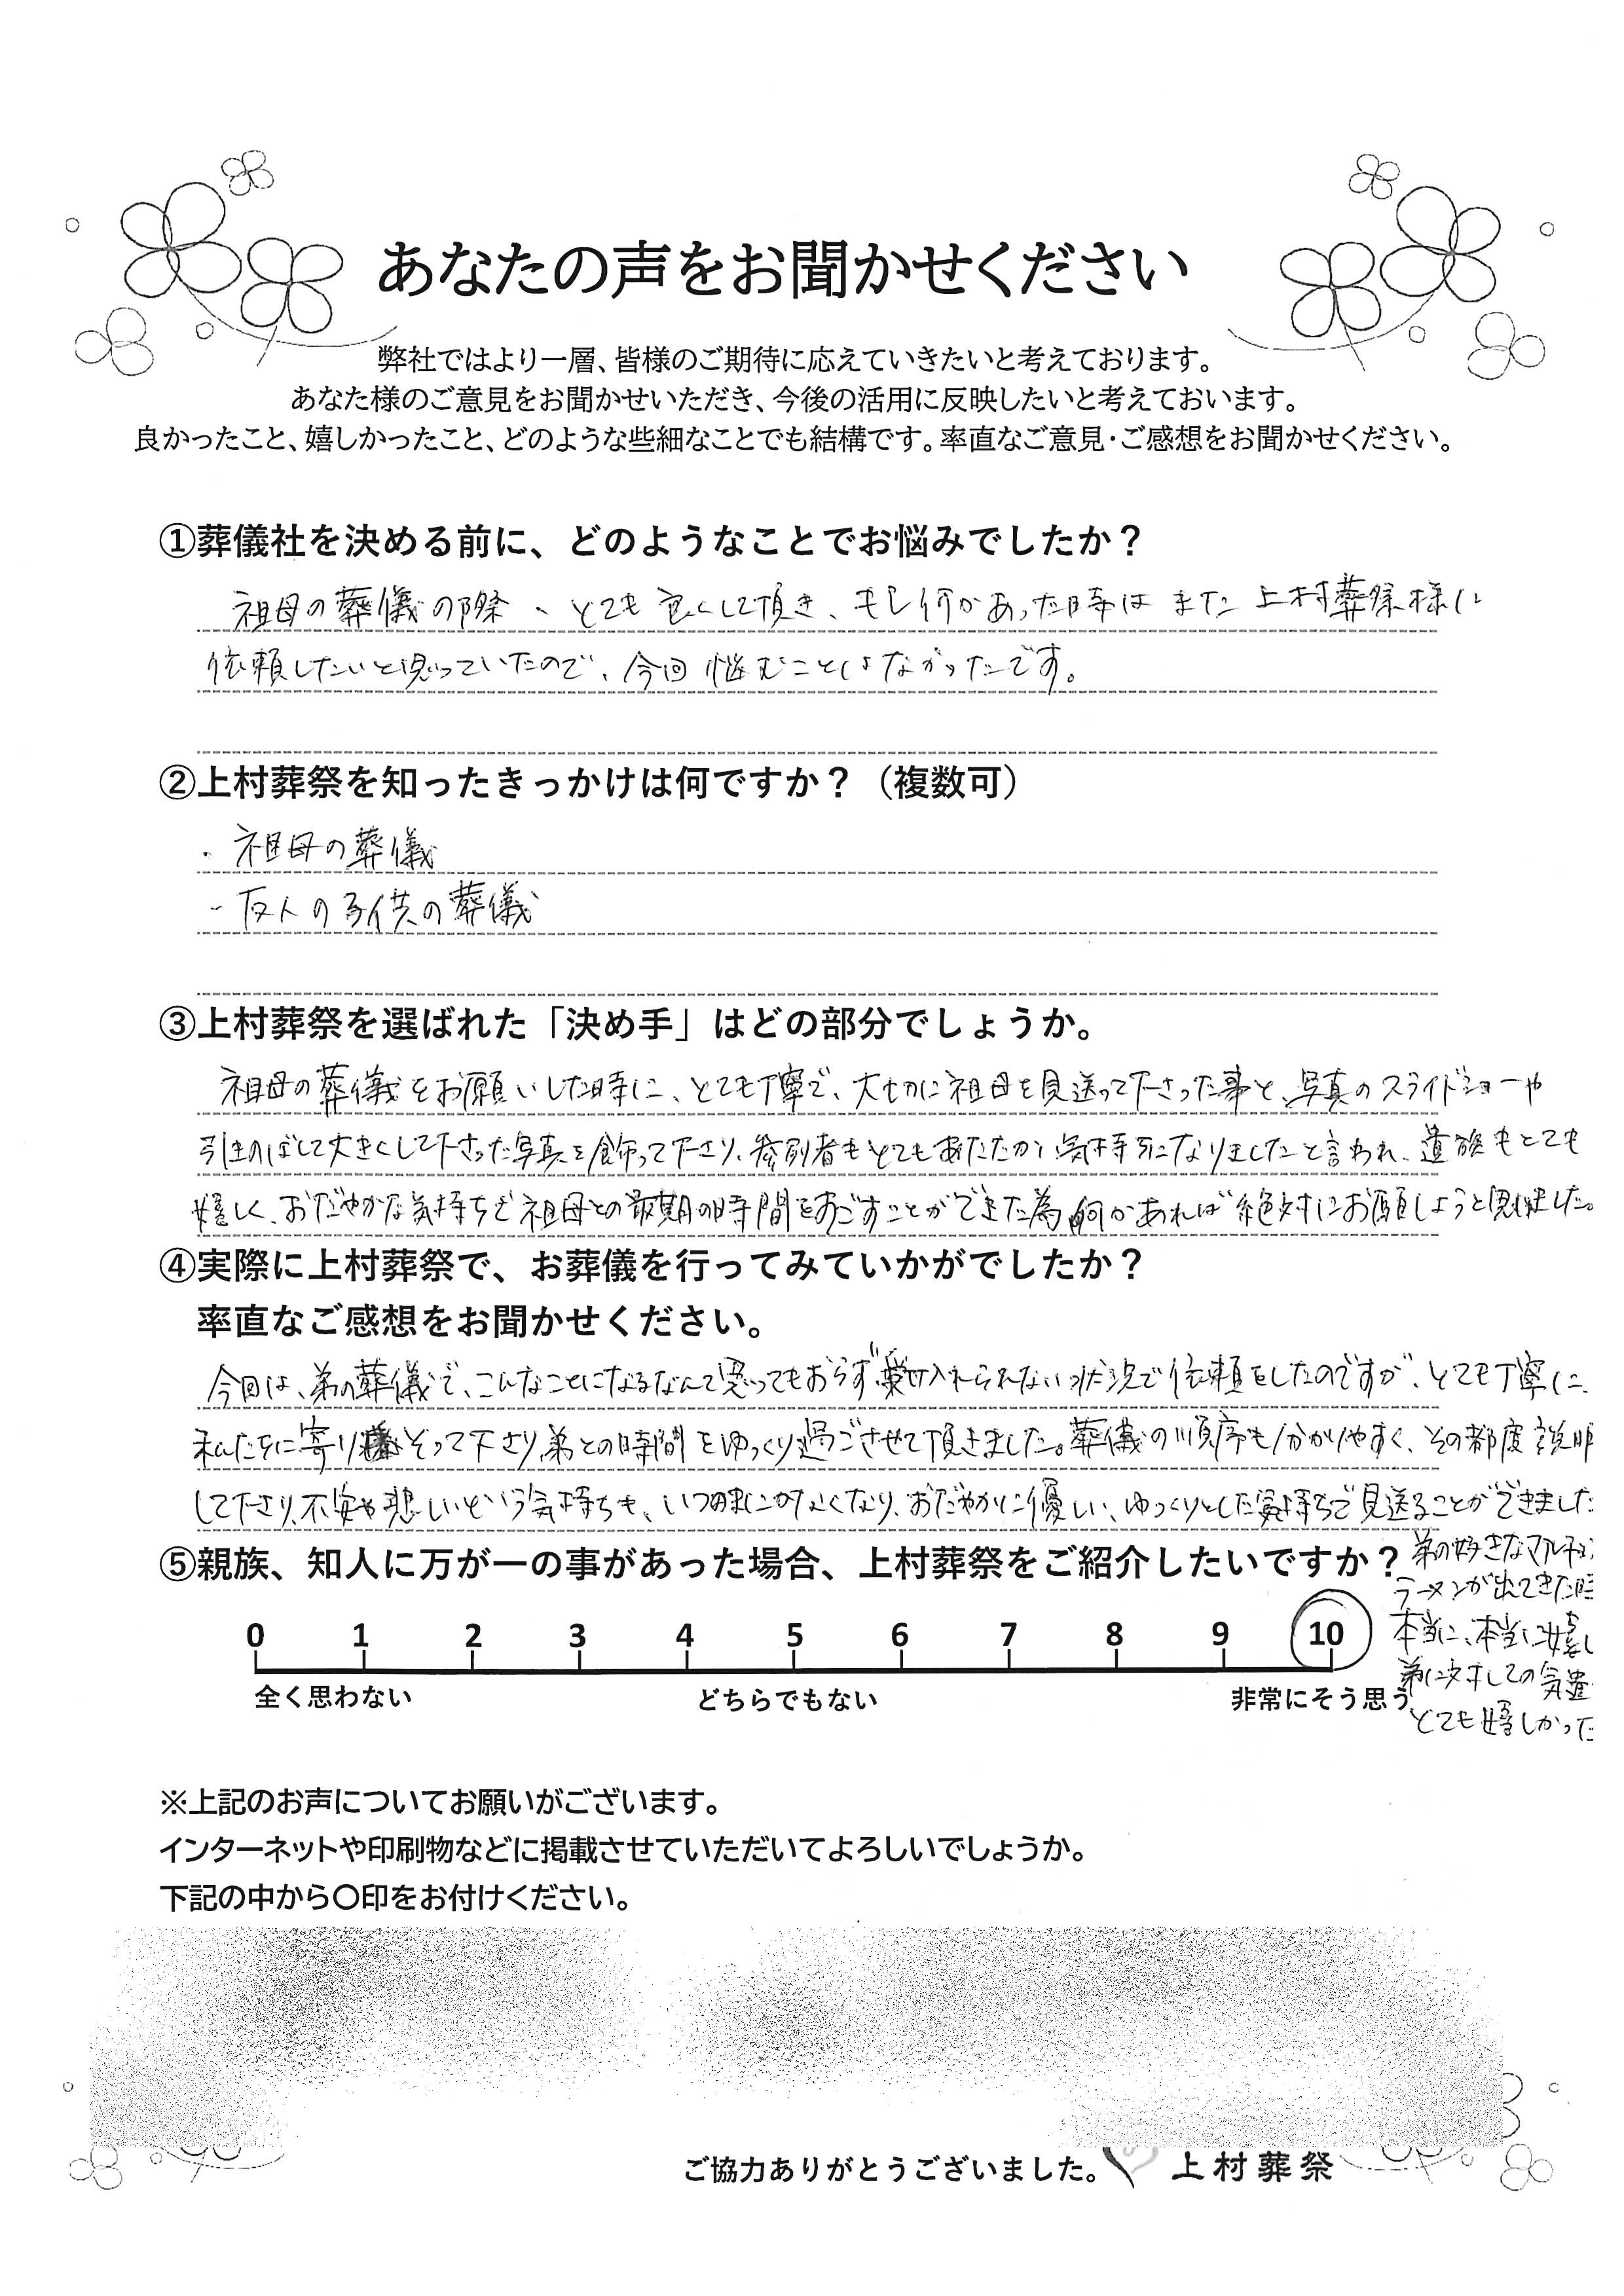 あなたの声をお聞かせください
弊社ではより一層、皆様のご期待に応えていきたいと考えております。
あなた様のご意見をお聞かせいただき、今後の活用に反映したいと考えておいます。
良かったこと、嬉しかったこと、どのような些細なことでも結構です。率直なご意見・ご感想をお聞かせください。
①葬儀社を決める前に、どのようなことでお悩みでしたか？
祖母の葬儀の際、とても良くして頂き、もし何かあった時はまた上村葬祭様に
依頼したいと思っていたので、今回悩むことはなかったです。
②上村葬祭を知ったきっかけは何ですか？（複数可）
・祖母の葬儀
・友人の子供の葬儀
③上村葬祭を選ばれた「決め手」はどの部分でしょうか。
祖母の葬儀をお願いした時に、とても丁寧で、大切に祖母を見送って下さった事と、写真のスライドショーや
引きのばして大きくして下さった写真を飾って下さり、参列者もとてもあたたかい気持ちになりましたと言われ、遺族もとても
嬉しく、おだやかな気持ちで祖母との最期の時間をすごすことができた為、何かあれば絶対にお願しようと思いました。
④実際に上村葬祭で、お葬儀を行ってみていかがでしたか？
率直なご感想をお聞かせください。
今回は、弟の葬儀で、こんなことになるなんて思ってもおらず、受け入れられない状況で依頼をしたのですが、とても丁寧に、
私たちに寄りそって下さり、弟との時間をゆっくり過ごさせて頂きました。葬儀の順序も分かりやすく、その都度説明
して下さり、不安や悲しいという気持ちも、いつの間にかなくなり、おだやかに優しい、ゆっくりとした気持ちで見送ることができました
弟の好きなマルチャン
ラーメンが出てきた時
本当に、本当に嬉し
弟に対しての気遣
とても嬉しかった
⑤親族、知人に万が一の事があった場合、上村葬祭をご紹介したいですか？
0 1 2 3 4 5 6 7 8 9 10
全く思わない どちらでもない 非常にそう思う
※上記のお声についてお願いがございます。
インターネットや印刷物などに掲載させていただいてよろしいでしょうか。
下記の中から〇印をお付けください。
ご協力ありがとうございました。 上村葬祭